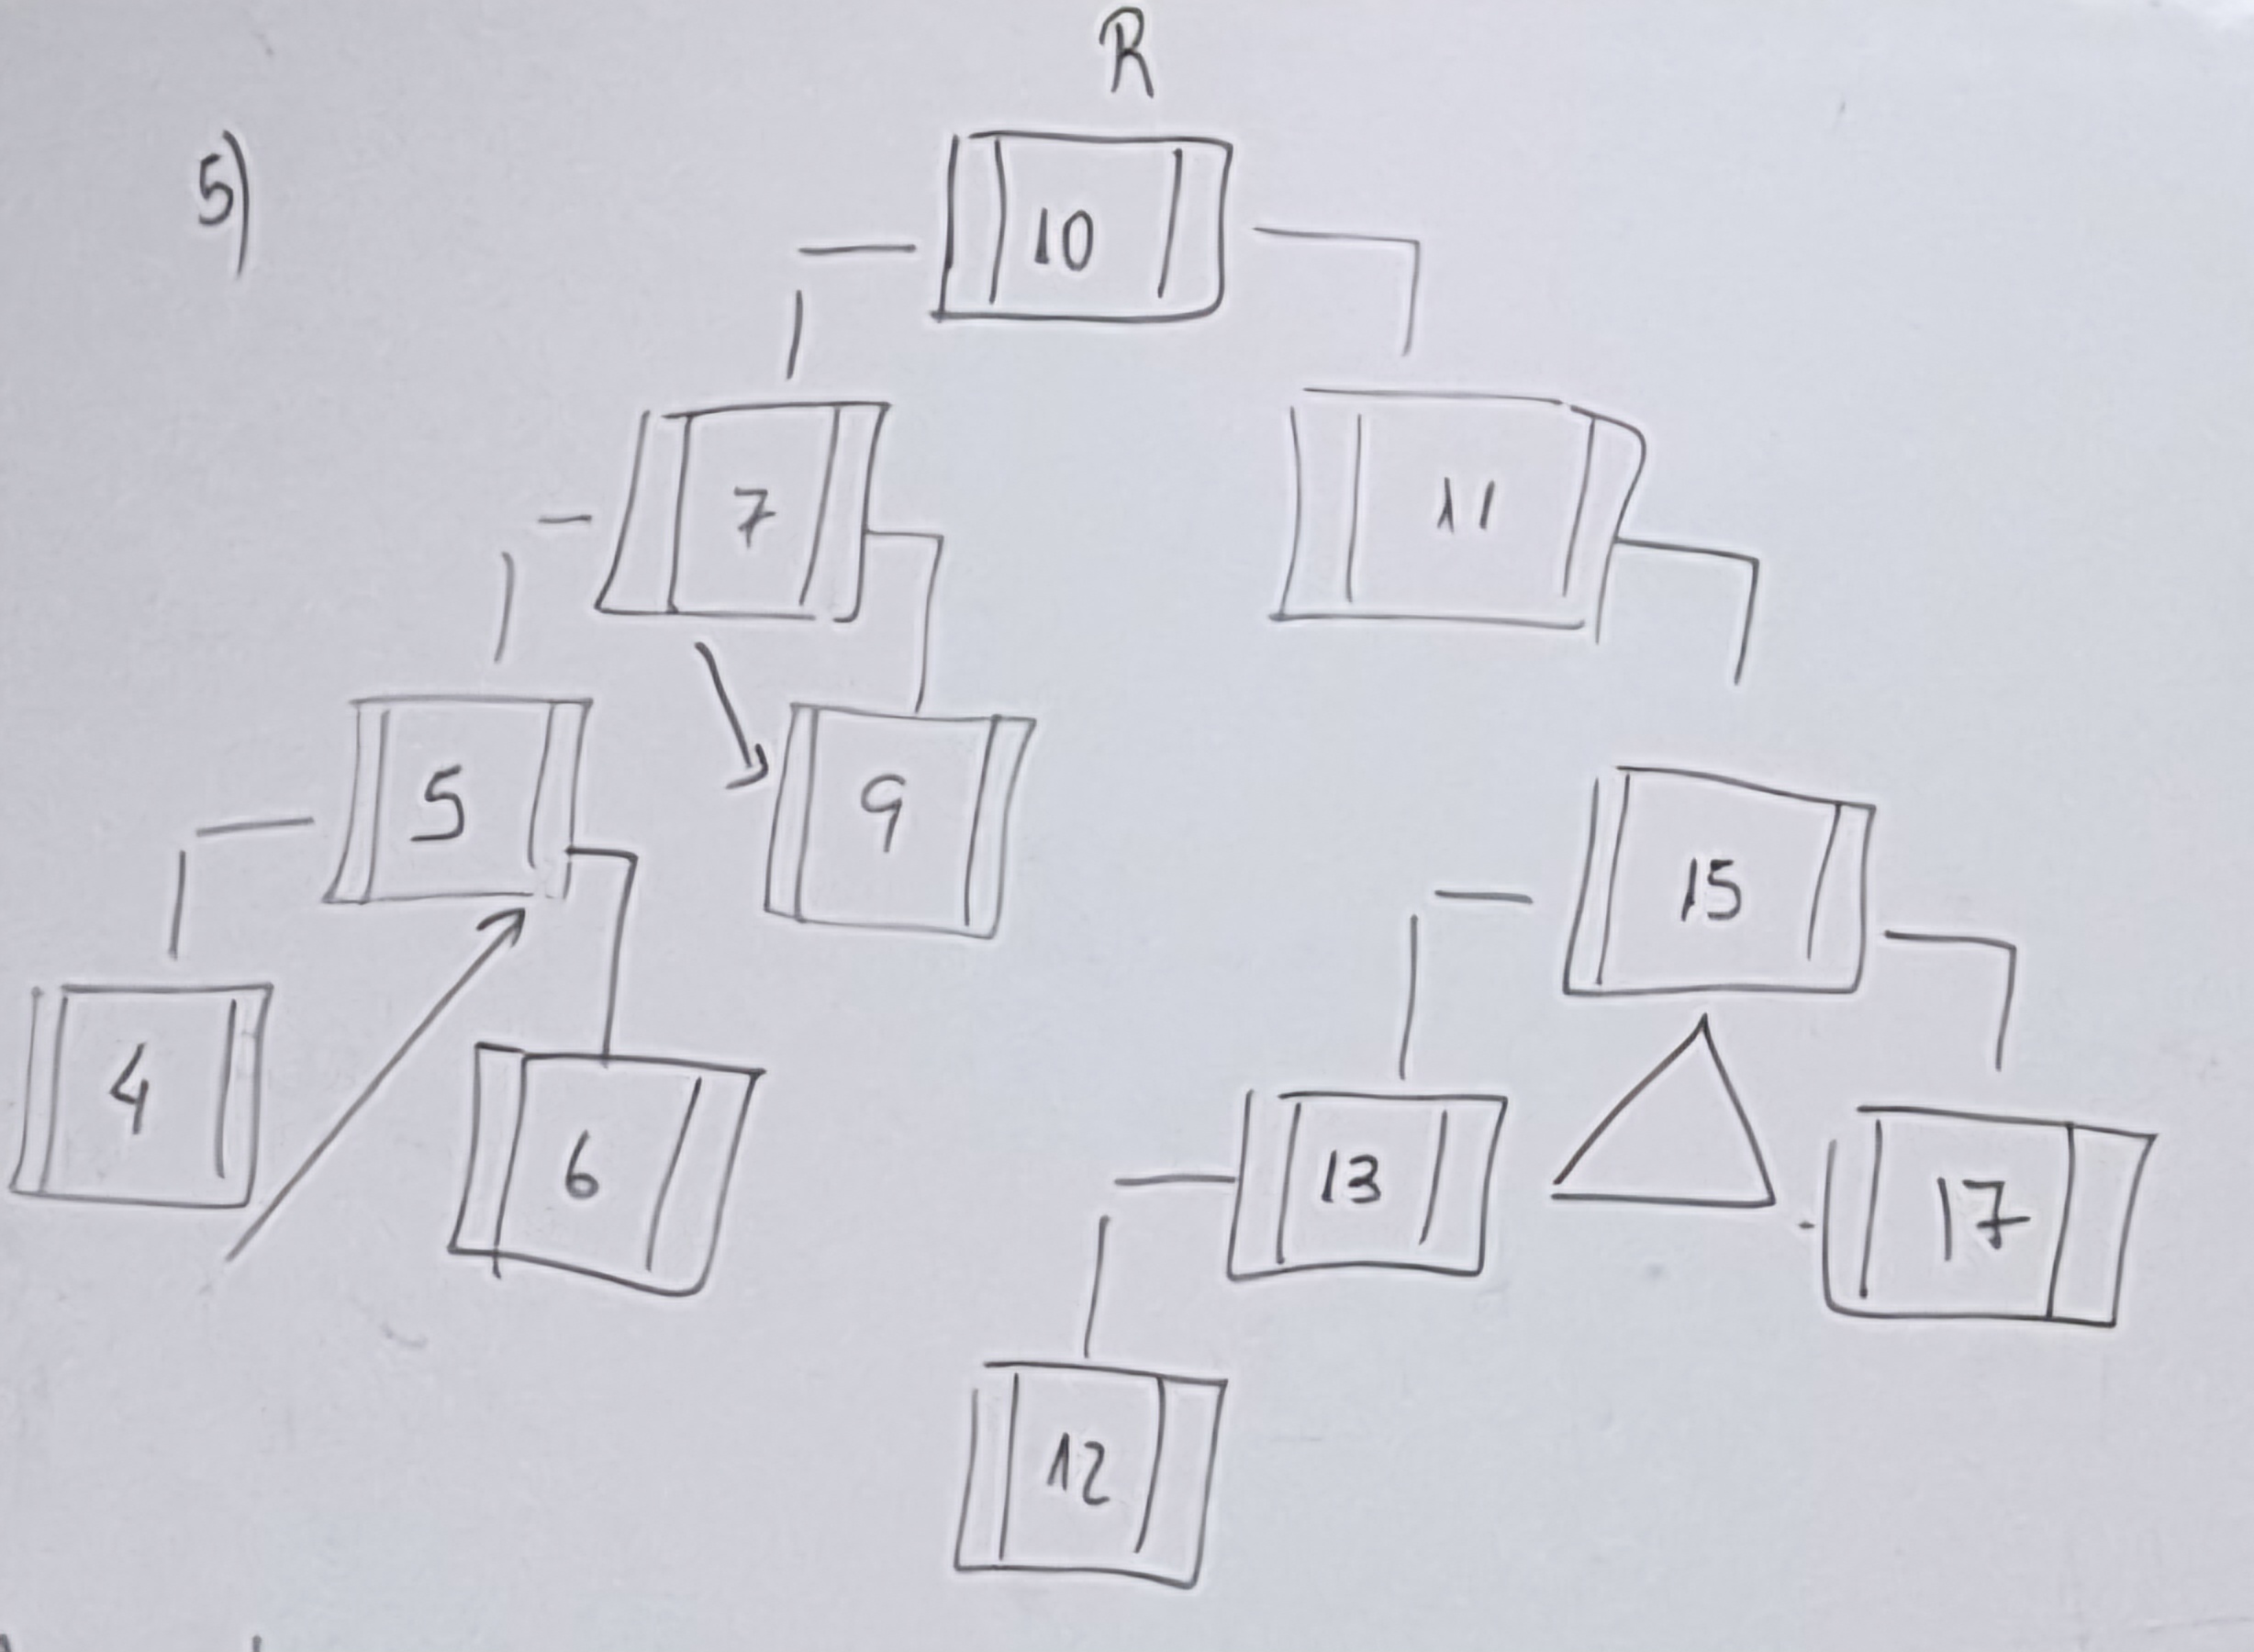 R
5)
10
7
11
5
9
15
4
6
13
17
12